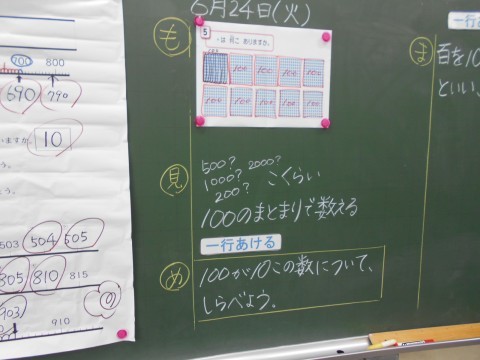 6月24日(火)
も
5
・は 何こ ありますか。
100 100 100 100
100 100 100 100 100
見
500? 2000?
1000? こくらい
200?
100のまとまりで数える
一行あける
め
100が10この数について、
しらべよう。
一行あ
ま
百を10
といい、
700 800
690 790
いますか
10
503 504 505
805 810 815
903
910